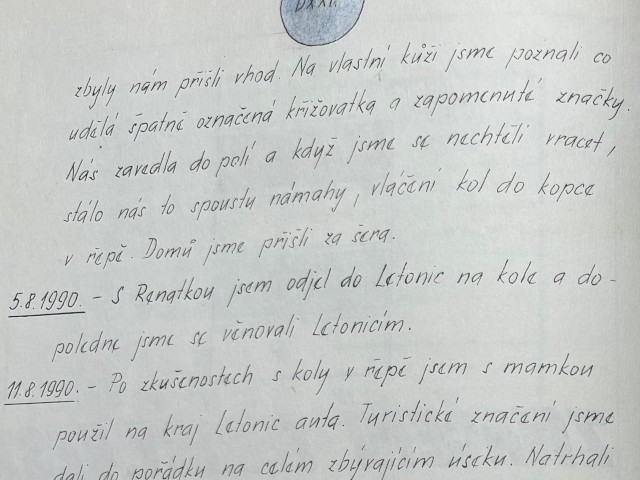 zbyly nám přišli vhod. Na vlastní kůži jsme poznali co
udělá špatně označená křižovatka a zapomenuté značky.
Nás zavedla do polí a když jsme se nechtěli vracet,
stálo nás to spoustu námahy, vláčení kol do kopce
v řepě. Domů jsme přišli za šera.
5.8.1990. - S Renatkou jsem odjel do Letonic na kole a do-
poledne jsme se věnovali Letonicím.
11.8.1990. - Po zkušenostech s koly v řepě jsem s mamkou
použil na kraj Letonic auta. Turistické značení jsme
dali do pořádku na celém zbývajícím úseku. Natrhali